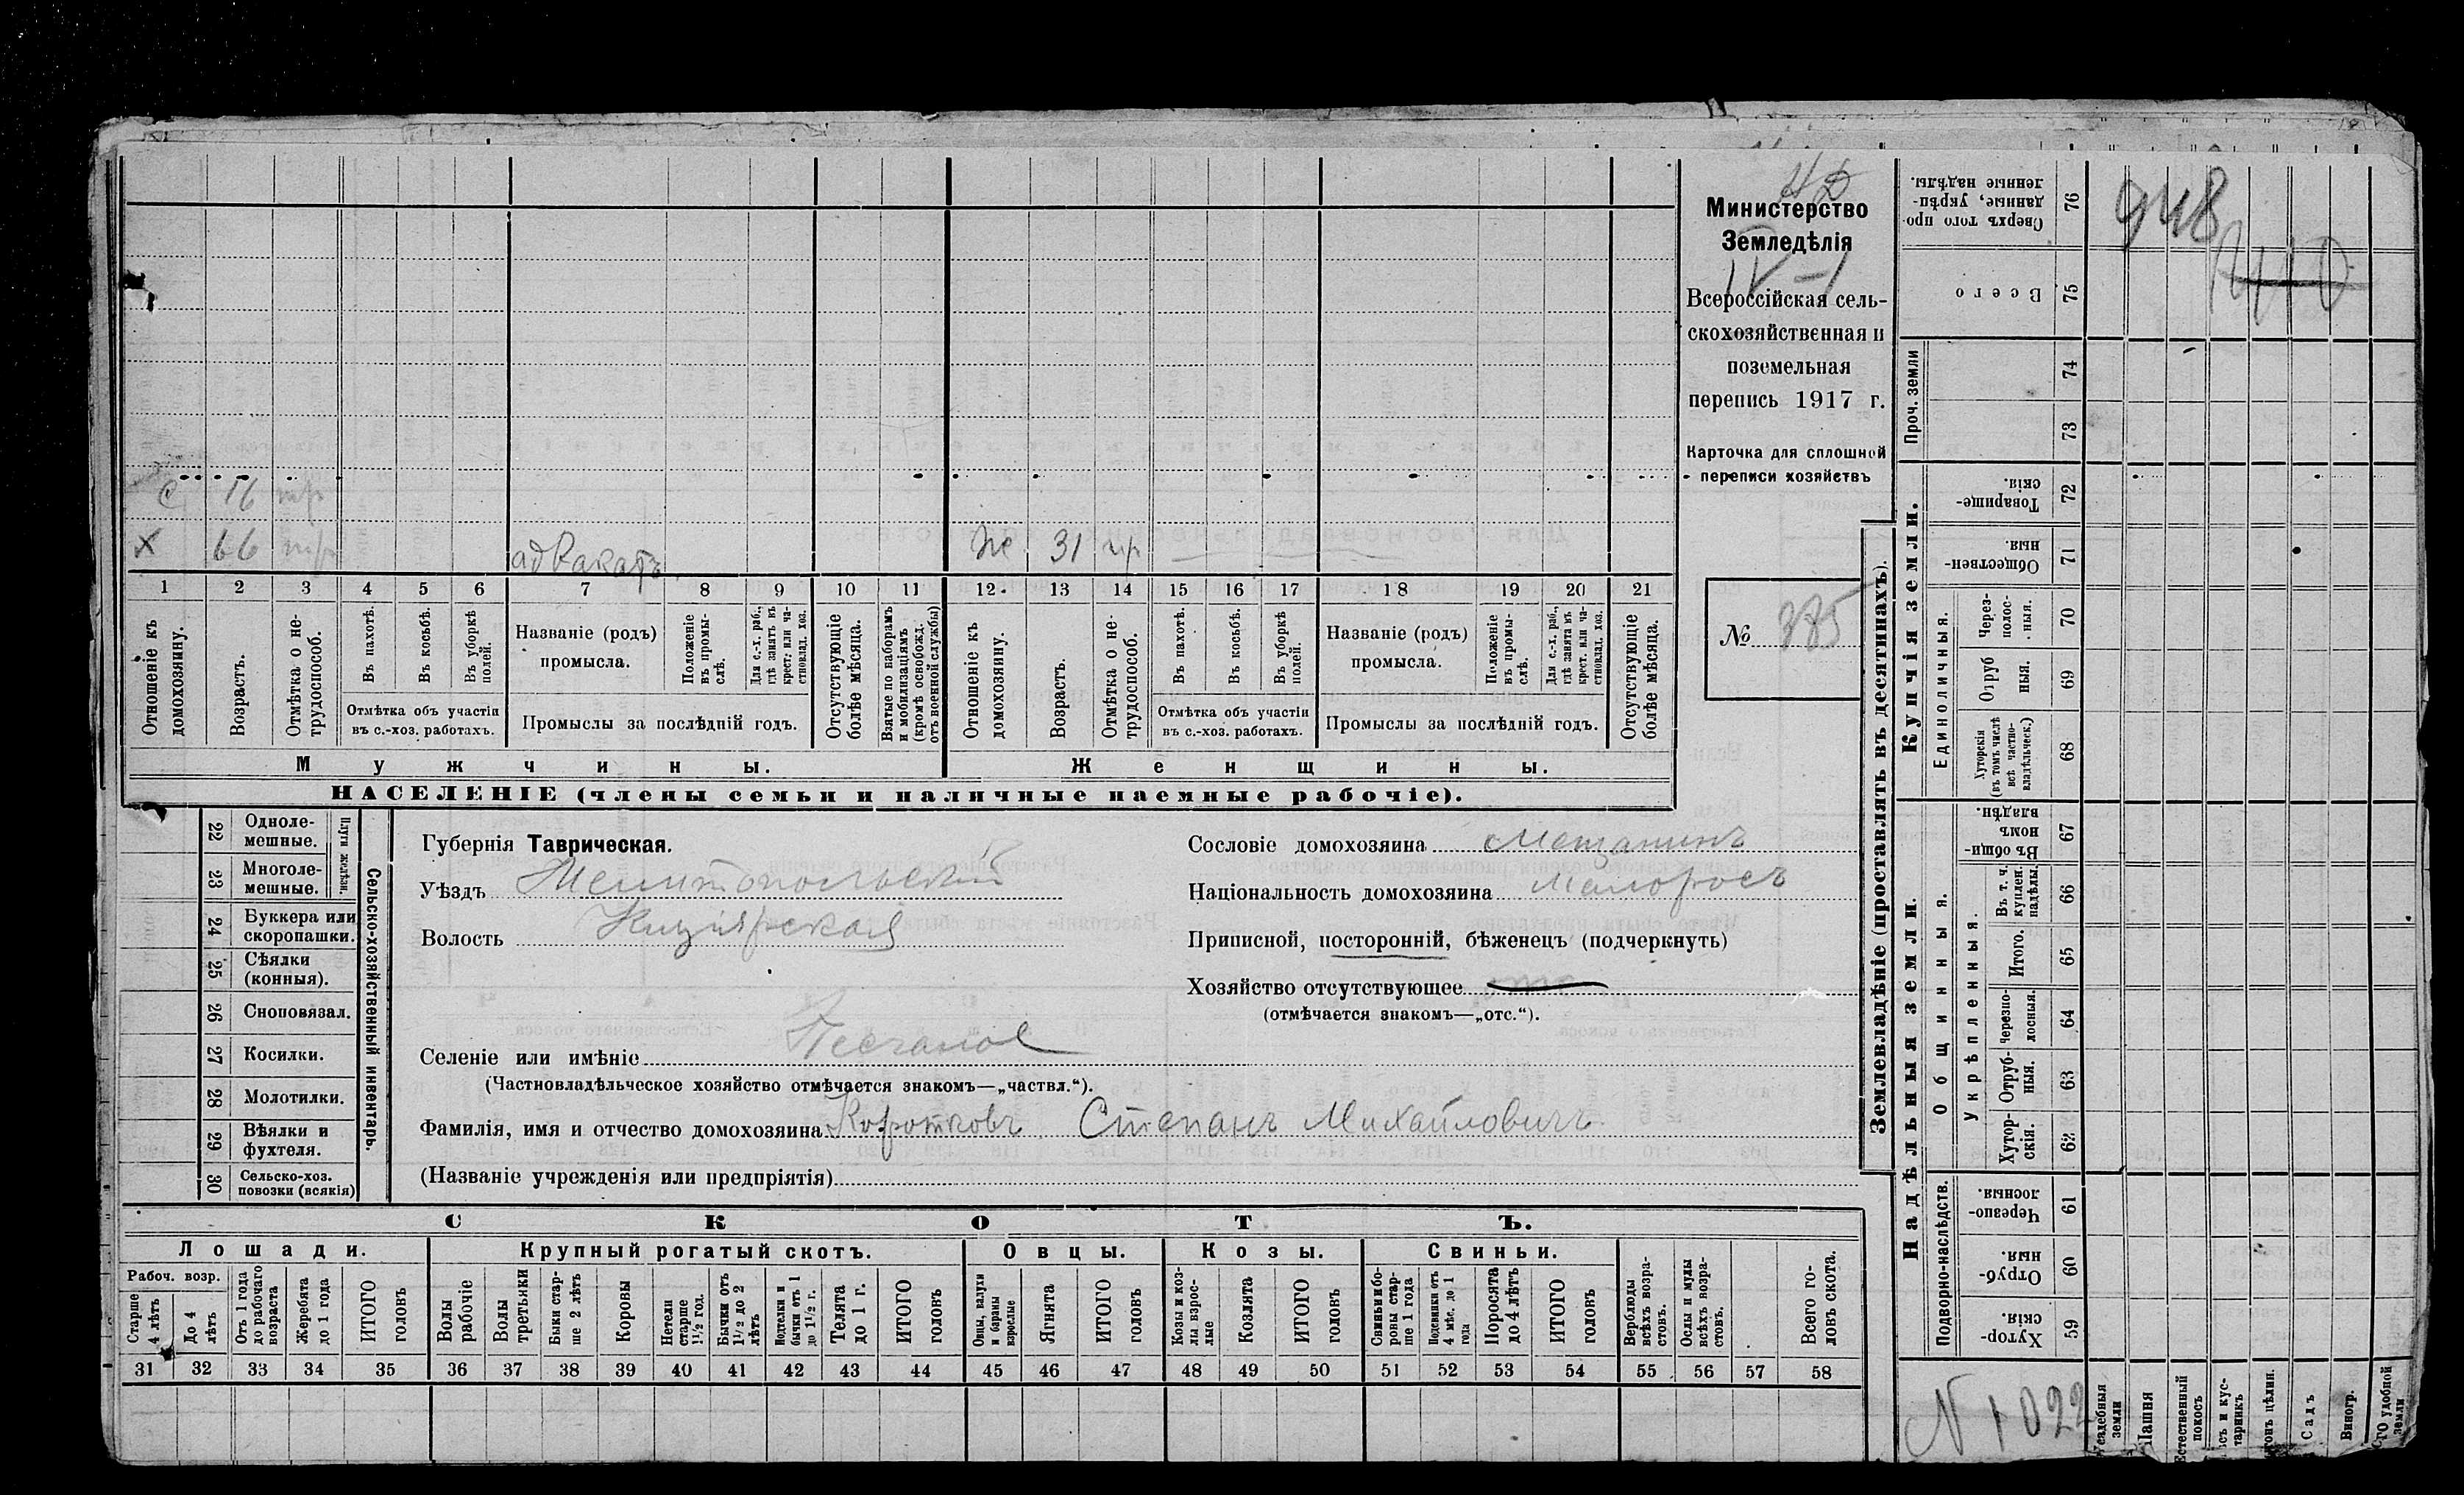 НД
Министерство
Земледѣлія
IV-1
Всероссійская сель-
скохозяйственная и
поземельная
перепись 1917 г.
Карточка для сплошной
переписи хозяйствъ
№ 385
С 16 тр
Х 66 тр адвакатъ 31 тр
1 2 3 4 5 6 7 8 9 10 11 12 13 14 15 16 17 18 19 20 21
Отношеніе къ домохозяину.
Возрастъ.
Отмѣтка о не-трудоспособ.
Въ пахотѣ.
Въ косьбѣ.
Въ уборкѣ полей.
Отмѣтка объ участіи
въ с.-хоз. работахъ.
Названіе (родъ)
промысла.
Положеніе въ промы-слѣ.
Для с.-х. раб., гдѣ занятъ въ крест. или ча-стновлад. хоз.
Промыслы за послѣдній годъ.
Отсутствующіе болѣе мѣсяца.
Взятые по наборамъ и мобилизаціямъ (кромѣ освобожд. отъ военной службы)
Отношеніе къ домохозяину.
Возрастъ.
Отмѣтка о не-трудоспособ.
Въ пахотѣ.
Въ косьбѣ.
Въ уборкѣ полей.
Отмѣтка объ участіи
въ с.-хоз. работахъ.
Названіе (родъ)
промысла.
Положеніе въ промы-слѣ.
Для с.-х. раб., гдѣ занята въ крест. или ча-стновлад. хоз.
Промыслы за послѣдній годъ.
Отсутствующіе болѣе мѣсяца.
Мужчины. Женщины.
НАСЕЛЕНІЕ (члены семьи и наличные наемные рабочіе).
Сельско-хозяйственный инвентарь.
Плуги желѣзн.
22 Одноле-мешные.
23 Многоле-мешные.
24 Буккера или скоропашки.
25 Сѣялки (конныя).
26 Сноповязал.
27 Косилки.
28 Молотилки.
29 Вѣялки и фухтеля.
30 Сельско-хоз. повозки (всякія)
Губернія Таврическая.
Уѣздъ Мелитопольскій
Волость Кизіярская
Селеніе или имѣніе Песчаное
(Частновладѣльческое хозяйство отмѣчается знакомъ—„частвл.“).
Фамилія, имя и отчество домохозяина Коротковъ Степанъ Михайловичъ
(Названіе учрежденія или предпріятія)
Сословіе домохозяина Мещанинъ
Національность домохозяина Малороссъ
Приписной, посторонній, бѣженецъ (подчеркнуть)
Хозяйство отсутствующее
(отмѣчается знакомъ—„отс.“).
СКОТЪ.
Лошади. Крупный рогатый скотъ. Овцы. Козы. Свиньи.
Рабоч. возр.
Старше 4 лѣтъ
До 4 лѣтъ
Отъ 1 года до рабочаго возраста
Жеребята до 1 года
ИТОГО головъ
Волы рабочіе
Волы третьяки
Быки стар-ше 2 лѣтъ
Коровы
Нетели старше 1½ год.
Бычки отъ 1½ до 2 лѣтъ
Подтелки и бычки отъ 1 до 1½ г.
Телята до 1 г.
ИТОГО головъ
Овцы, валухи и бараны взрослые
Ягнята
ИТОГО головъ
Козы и коз-лы взрос-лые
Козлята
ИТОГО головъ
Свиньи и бо-ровы стар-ше 1 года
Подсвинки отъ 4 мѣс. до 1 года
Поросята до 4 лѣтъ
ИТОГО головъ
Верблюды всѣхъ возра-стовъ.
Ослы и мулы всѣхъ возра-стовъ.
Всего го-ловъ скота.
31 32 33 34 35 36 37 38 39 40 41 42 43 44 45 46 47 48 49 50 51 52 53 54 55 56 57 58
Землевладѣніе (проставлять въ десятинахъ).
Сверхъ того про-данные, укрѣп-ленные надѣлы. 76
Всего 75
Проч. земли 74 73
Купчія земли.
Товарище-скія. 72
Обществен-ныя. 71
Единоличныя.
Через-полос-ныя. 70
Отруб ныя. 69
Хуторскія (въ томъ числѣ всѣ частно-владѣльческ.) 68
Надѣльныя земли.
Общинныя.
Въ общи-номъ владѣн. 67
Укрѣпленныя.
Въ т. ч. куплен. надѣлы 66
Итого. 65
черезпо-лосныя. 64
Отруб-ныя. 63
Хутор-скія. 62
Подворно-наслѣдств.
Черезпо-лосныя. 61
Отруб-ныя. 60
Хутор-скія. 59
N 1022
Усадебныя земли
Пашня
Естественный покосъ
Садъ
Виногр.